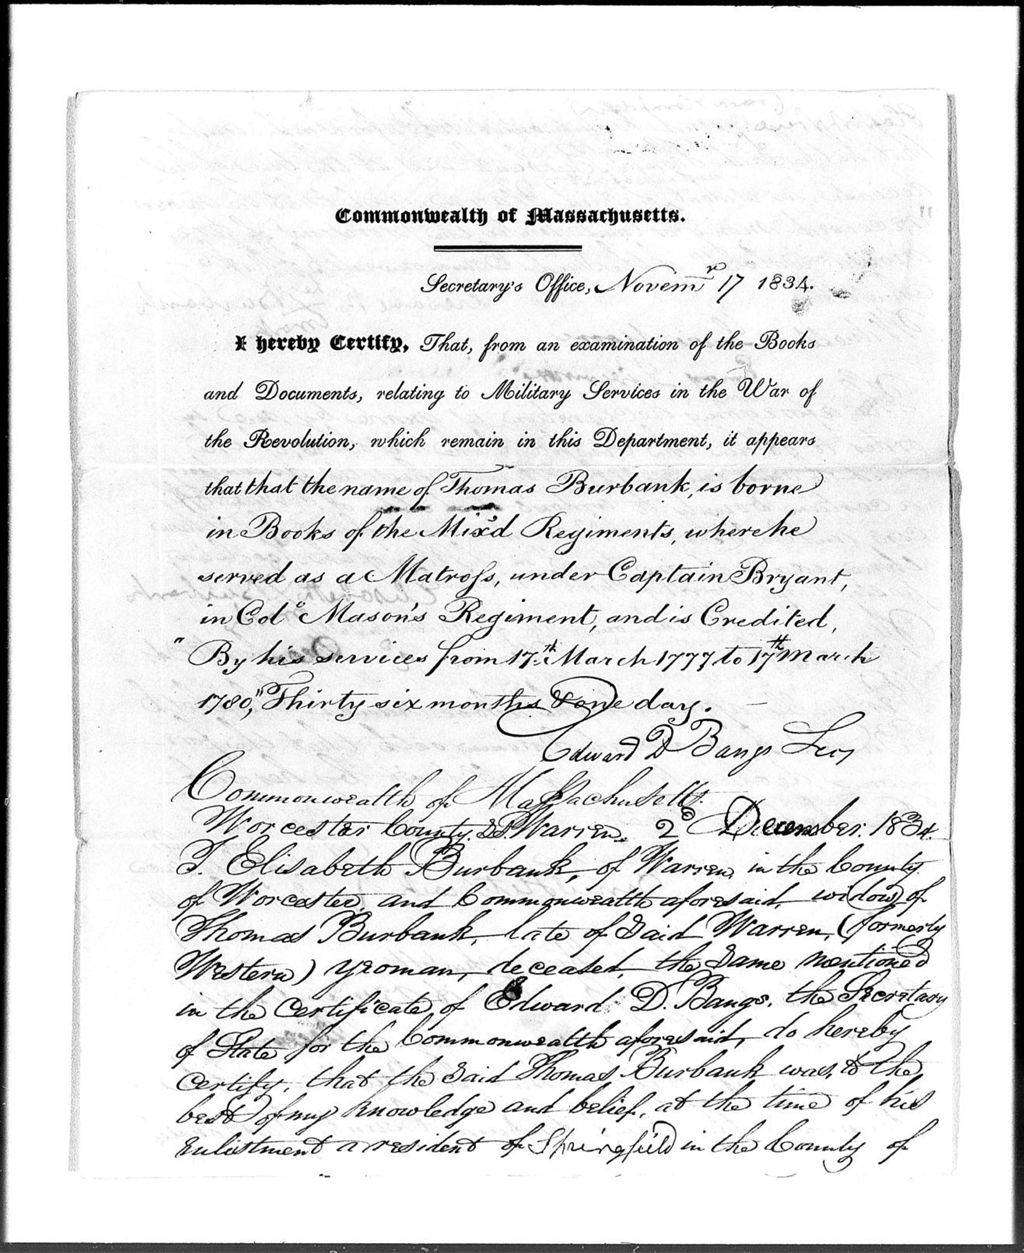 Commonwealth of Massachusetts.
Secretary's Office, Novemr 17 1834.
I hereby Certify, That, from an examination of the Books
and Documents, relating to Military Services in the War of
the Revolution, which remain in this Department, it appears
that that the name of Thomas Burbank, is borne
in Books of the Mix'd Regiments, where he
served as a Matross, under Captain Bryant,
in Colo Mason's Regiment, and is Credited,
"By his services from 17th March 1777 to 17th March
1780," Thirty six months & one day.
Edward D Bangs Secy
Commonwealth of Massachusetts.
Worcester County, SS Warren. 2d December. 1834.
I, Elisabeth Burbank, of Warren, in the County
of Worcester, and Commonwealth aforesaid, widow of
Thomas Burbank, late of Said Warren, (formerly
Western) yeoman, deceased, the Same mentioned
in the Certificate, of Edward D. Bangs, the Secretary
of State for the Commonwealth aforesaid, do hereby
certify, that the Said Thomas Burbank was, to the
best of my knowledge and belief, at the time of his
Enlistment a resident of Springfield in the County of